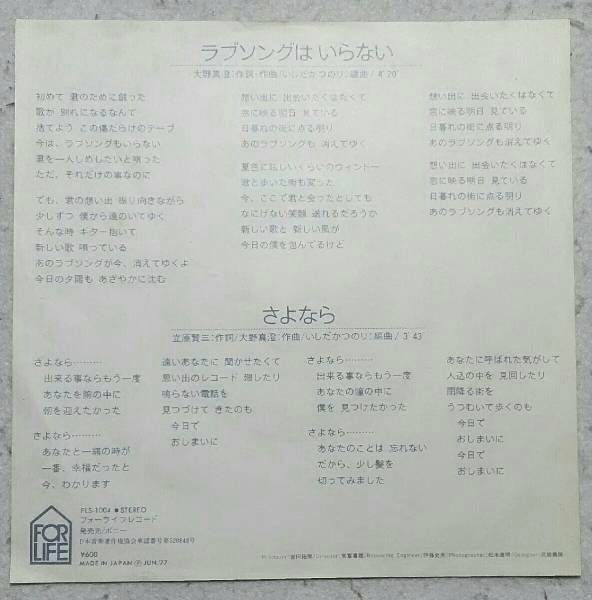 ラブソングはいらない
大野真澄:作詞・作曲/いしだかつのり:編曲/4'20"
初めて 君のために創った
歌が 別れになるなんて
捨てよう この傷だらけのテープ
今は、ラブソングもいらない
君を一人じめしたいと唄った
ただ、それだけの事なのに
でも、君の想い出 振り向きながら
少しずつ 僕から遠のいてゆく
そんな時 ギター抱いて
新しい歌 唄っている
あのラブソングが今、消えてゆくよ
今日の夕陽も あざやかに沈む
想い出に 出会いたくはなくて
窓に映る明日 見ている
日暮れの街に点る明り
あのラブソングも 消えてゆく
夏色に眩しいくらいのウィンドー
君と歩いた街も変った
今、ここで君と会ったとしても
なにげない笑顔 送れるだろうか
新しい歌と 新しい風が
今日の僕を包んでるけど
想い出に 出会いたくはなくて
窓に映る明日 見ている
日暮れの街に点る明り
あのラブソングも消えてゆく
想い出に 出会いたくはなくて
窓に映る明日 見ている
日暮れの街に点る明り
あのラブソングも消えてゆく
さよなら
立原賢三:作詞/大野真澄:作曲/いしだかつのり:編曲/3'43"
さよなら………
出来る事ならもう一度
あなたを腕の中に
朝を迎えたかった
さよなら………
あなたと一緒の時が
一番、幸福だったと
今、わかります
遠いあなたに 聞かせたくて
思い出のレコード 廻したり
鳴らない電話を
見つづけて きたのも
今日で
おしまいに
さよなら………
出来る事ならもう一度
あなたの瞳の中に
僕を 見つけたかった
さよなら………
あなたのことは 忘れない
だから、少し髪を
切ってみました
あなたに呼ばれた気がして
人込の中を 見回したり
雨降る街を
うつむいて歩くのも
今日で
おしまいに
今日で
おしまいに
FOR LIFE
FLS-1004 ●STEREO
フォーライフレコード
発売元/ポニー
日本音楽著作権協会承認番号第520848号
¥600
MADE IN JAPAN Ⓟ JUN.'77